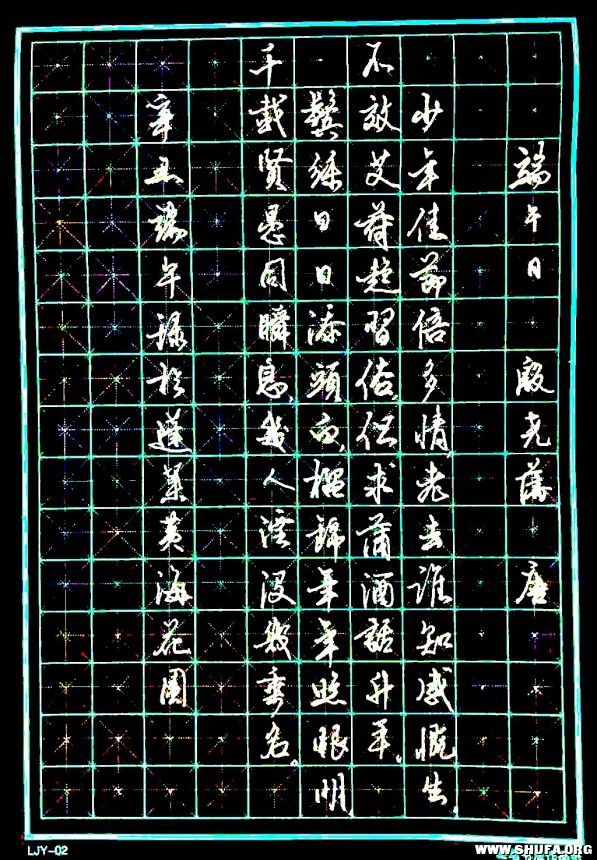 端午日 殷尧藩 唐
少年佳節倍多情,老去谁知感慨生。
不效艾符趋習俗,但求蒲酒話升平。
鬓絲日日添頭白,榴錦年年照眼明
千載贤愚同瞬息,幾人湮没幾垂名。
辛丑端午録於蓬莱黄海花園
LJY-02
WWW.SHUFA.ORG